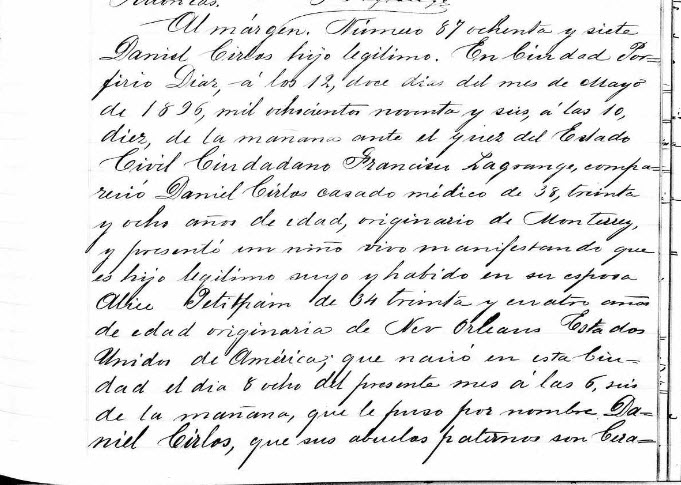 Al márgen. Número 87 ochenta y siete
Daniel Cirlos hijo legítimo. En Ciudad Por-
firio Diaz, á los 12, doce dias del mes de Mayo
de 1896, mil ochocientos noventa y seis, á las 10,
diez, de la mañana ante el Juez del Estado
Civil Ciudadano Francisco Lagrange, compa-
reció Daniel Cirlos casado médico de 38, treinta
y ocho años de edad, originario de Monterrey,
y presentó un niño vivo manifestando que
es hijo legítimo suyo y habido en su esposa
Alice Petitpain de 34 treinta y cuatro años
de edad originaria de New Orleans Estados
Unidos de América; que nació en esta Ciu-
dad el dia 8 ocho del presente mes á las 6, seis
de la mañana, que le puso por nombre Da-
niel Cirlos, que sus abuelos paternos son Cera-